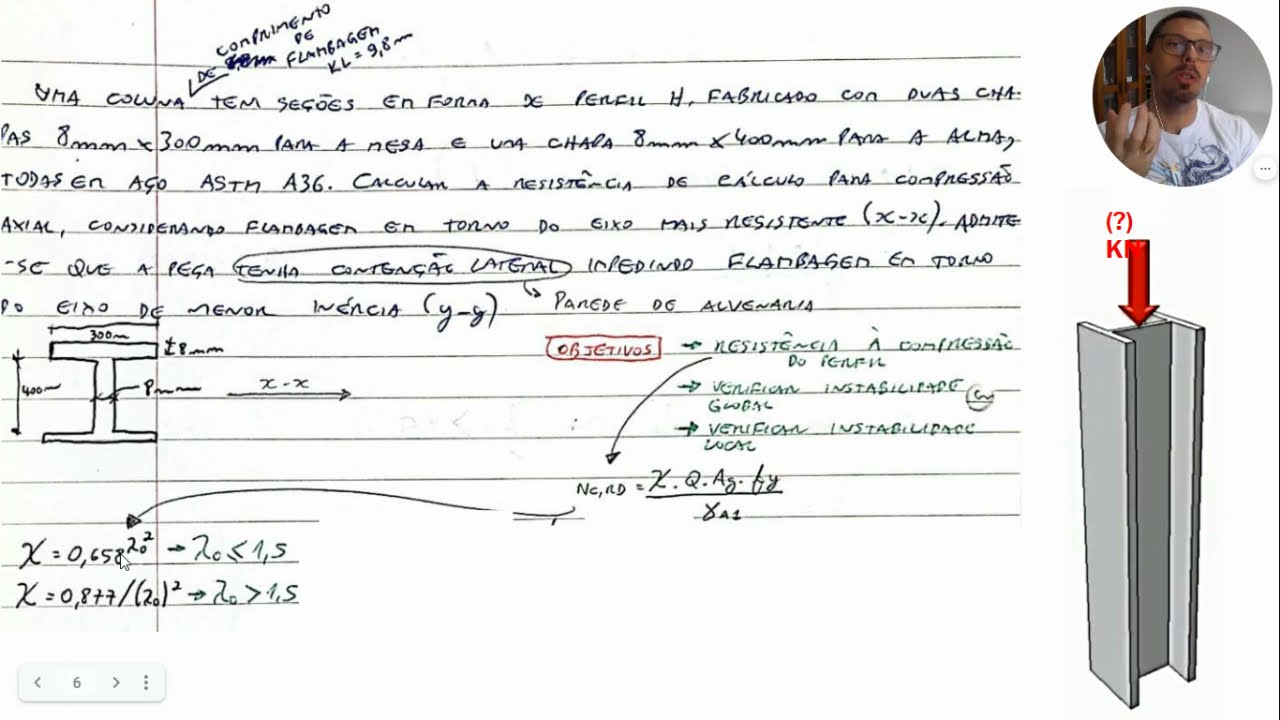 COMPRIMENTO
DE
DE FLAMBAGEM
KL = 9,8m
UMA COLUNA TEM SEÇÕES EM FORMA DE PERFIL H, FABRICADO COM DUAS CHA-
PAS 8mm x 300mm PARA A MESA E UMA CHAPA 8mm x 400mm PARA A ALMA,
TODAS EM AÇO ASTM A36. CALCULAR A RESISTÊNCIA DE CÁLCULO PARA COMPRESSÃO
AXIAL, CONSIDERANDO FLAMBAGEM EM TORNO DO EIXO MAIS RESISTENTE (x-x). ADMITE
-SE QUE A PEÇA TENHA CONTENÇÃO LATERAL IMPEDINDO FLAMBAGEM EM TORNO
DO EIXO DE MENOR INÉRCIA (y-y) PAREDE DE ALVENARIA
300m
8mm
400m
8mm
x-x
OBJETIVOS → RESISTÊNCIA À COMPRESSÃO
DO PERFIL
→ VERIFICAR INSTABILIDADE
GLOBAL
→ VERIFICAR INSTABILIDADE
LOCAL
Nc,RD = χ.Q.Ag.fy
γA1
χ = 0,658^λ0² → λ0 ≤ 1,5
χ = 0,877/(λ0)² → λ0 > 1,5
(?)
KN
6